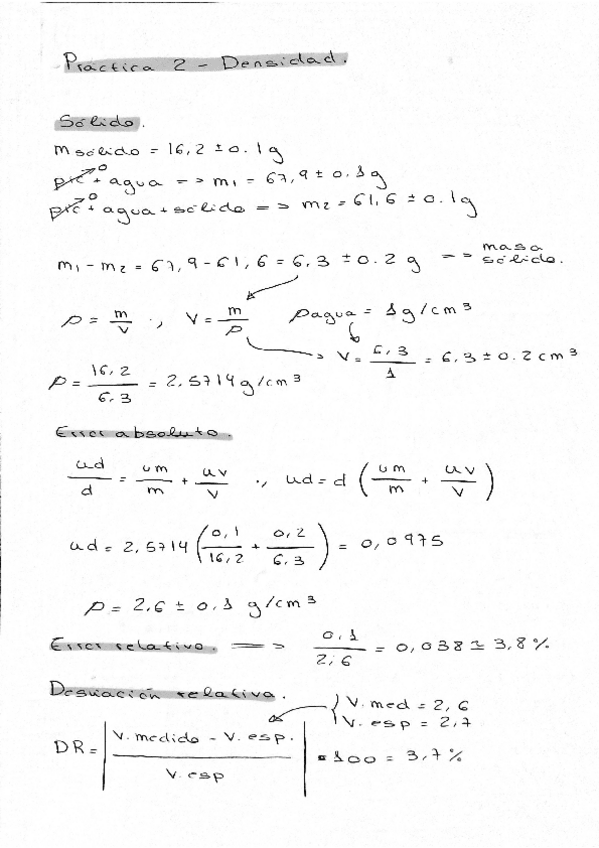 Práctica 2 - Densidad.
Sólido.
m sólido = 16,2 ± 0.1g
pic⁰ + agua => m₁ = 67,9 ± 0.1g
pic⁰ + agua + sólido => m₂ = 61,6 ± 0.1g
m₁ - m₂ = 67,9 - 61,6 = 6,3 ± 0.2 g => masa sólido.
ρ = m/v ., V = m/ρ ρagua = 1g/cm³
V = 6,3/1 = 6,3 ± 0.2 cm³
ρ = 16,2/6,3 = 2,5714 g/cm³
Error absoluto.
ud/d = um/m + uv/v ., ud = d (um/m + uv/v)
ud = 2,5714 (0,1/16,2 + 0,2/6.3) = 0,0975
ρ = 2,6 ± 0,1 g/cm³
Error relativo. => 0,1/2,6 = 0,038 ≃ 3,8%
Desviación relativa.
V. med = 2,6
V. esp = 2,7
DR = |V. medido - V. esp. / V. esp| · 100 = 3,7%